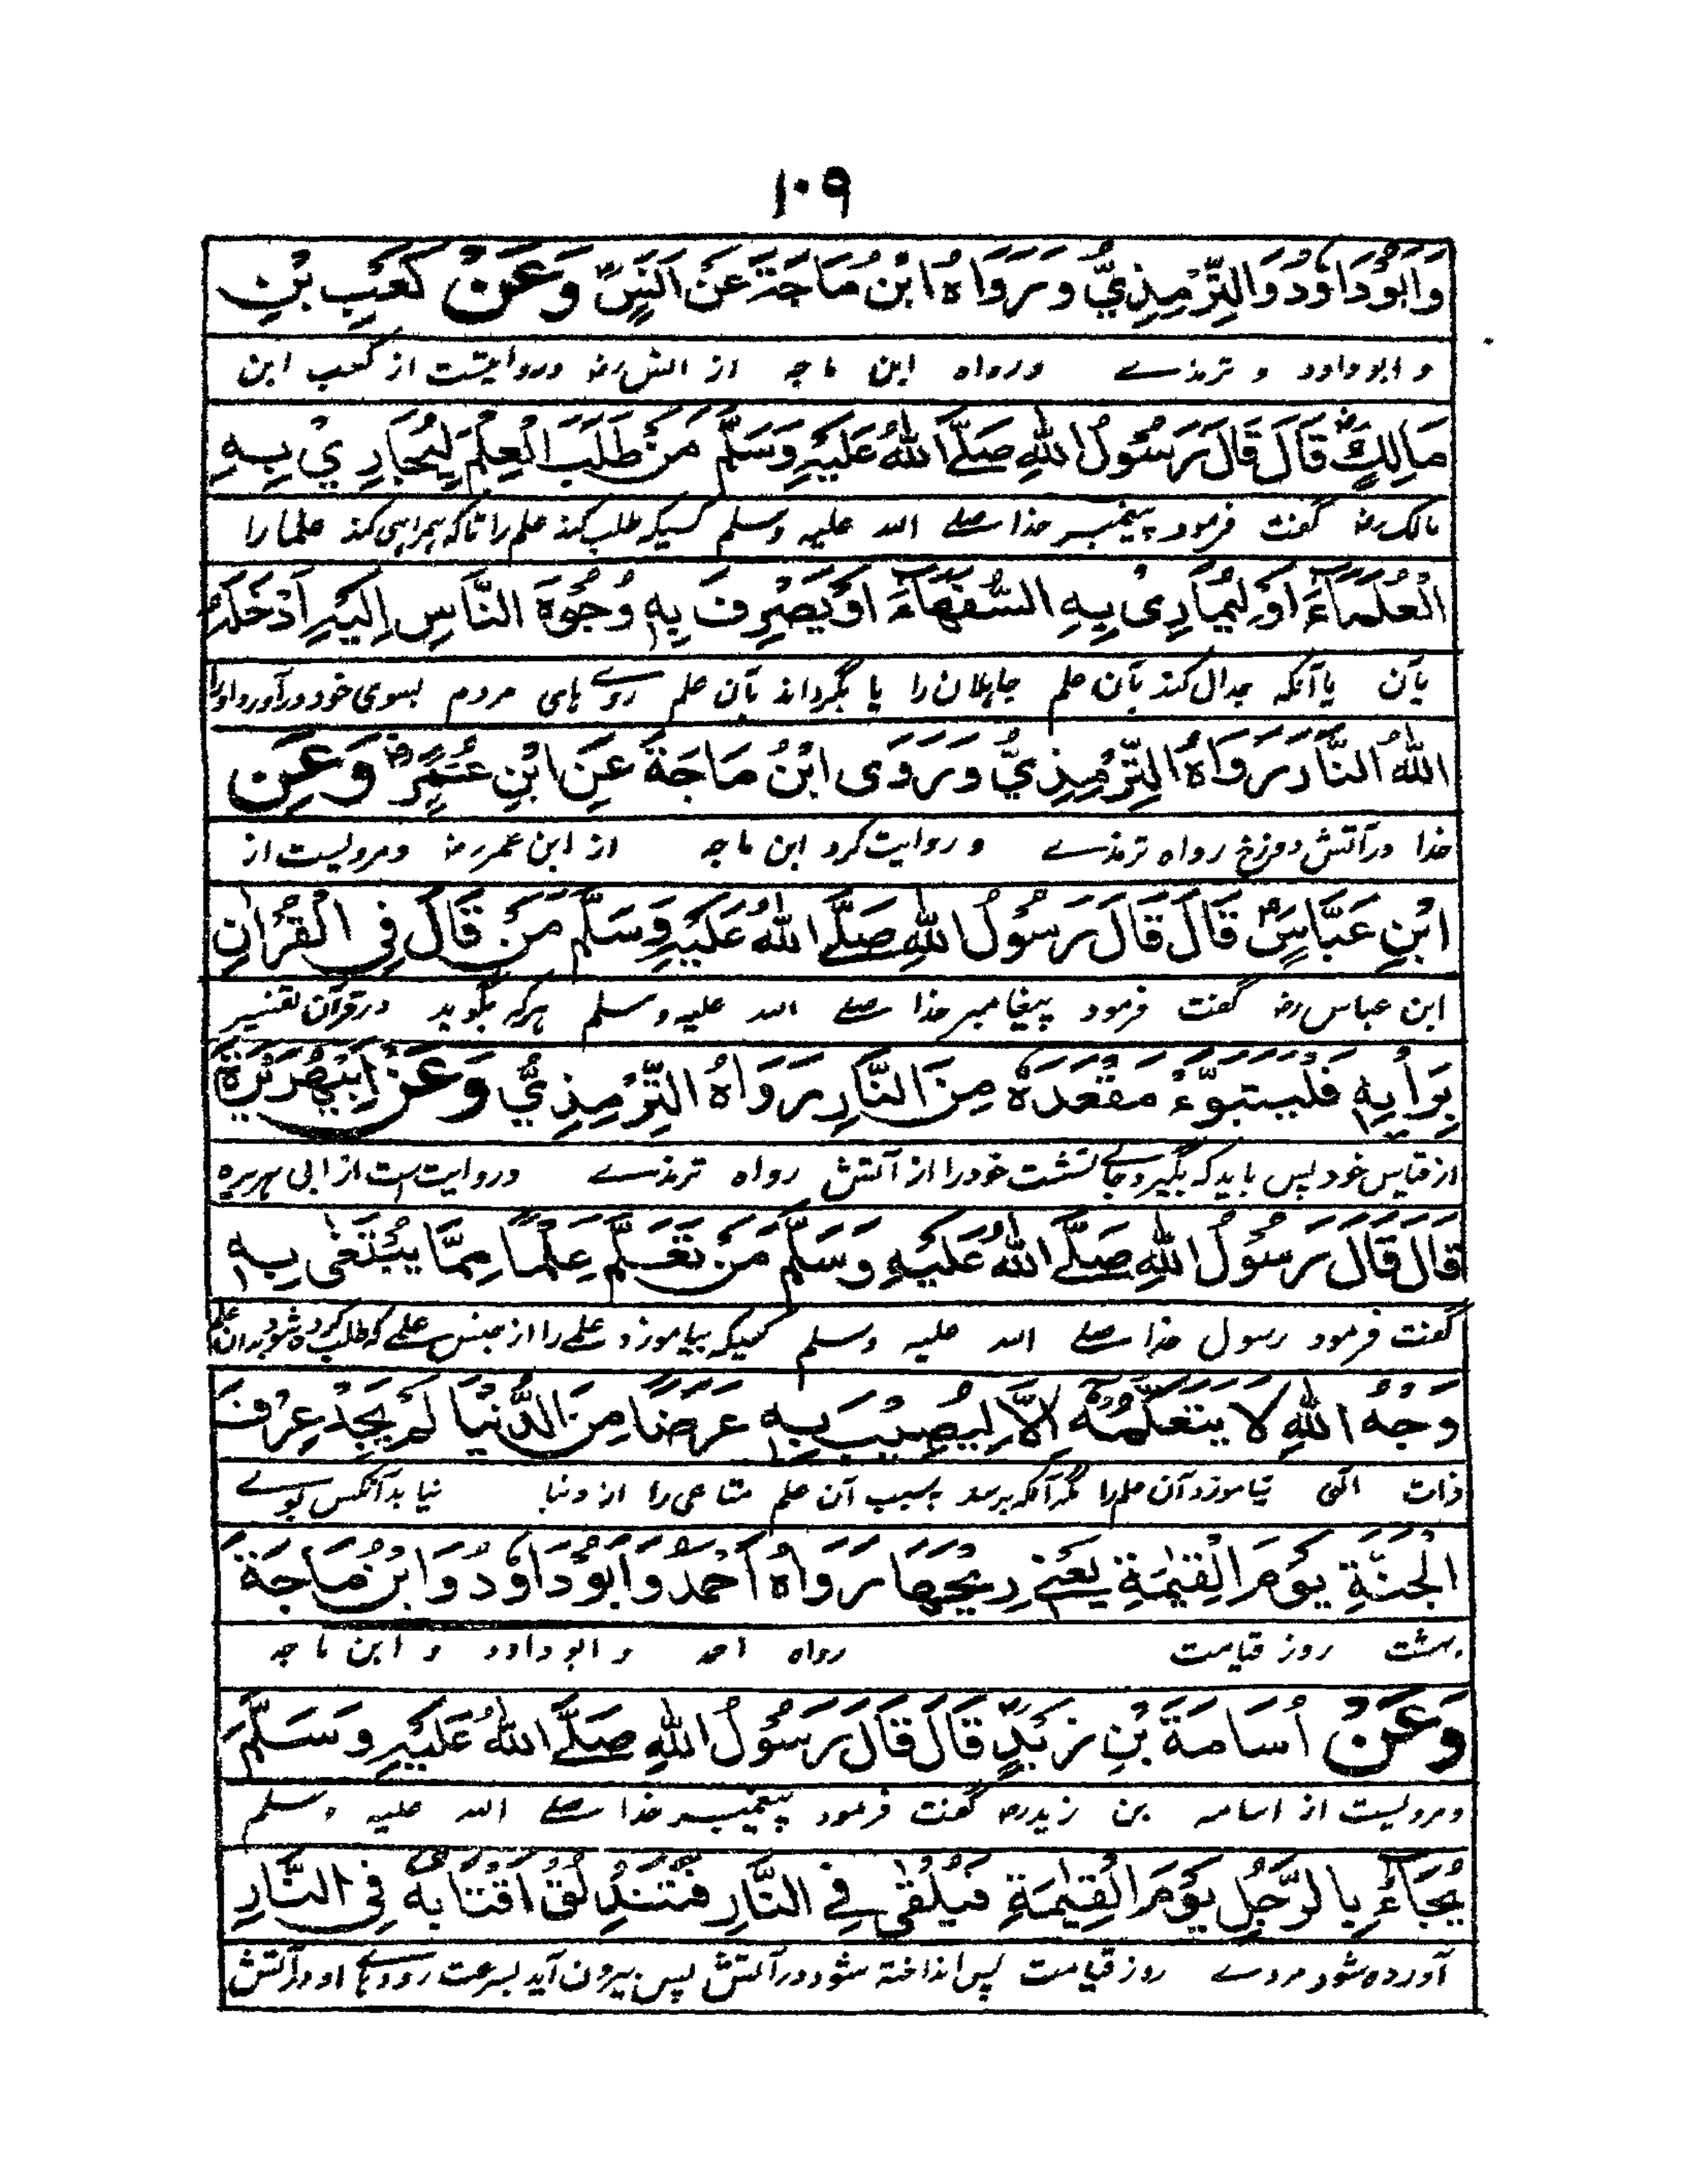 ۱۰۹
وَاَبُوْدَاوٗدَ وَالتِّرْمِذِيُّ وَرَوَاهُ ابْنُ مَاجَةَ عَنْ اَنَسٍؓ وَعَنْ كَعْبِ بْنِ
و ابو داود و ترمذے ورواه ابن ماجه از انس رضہ وروایتست از کعب ابن
مَالِكٍؓ قَالَ قَالَ رَسُوْلُ اللهِ صَلَّے اللهُ عَلَيْهِ وَسَلَّمَ مَنْ طَلَبَ الْعِلْمَ لِيُجَارِيْ بِهِ
مالک رضہ گفت فرمود پیغمبر خدا صلے اللہ علیہ وسلم کسیکہ طلب کند علم را تا کہ ہمراہی کند علما را
الْعُلَمَآءَ اَوْ لِيُمَارِیْ بِهِ السُّفَهَآءَ اَوْ يَصْرِفَ بِهٖ وُجُوْهَ النَّاسِ اِلَيْهِ اَدْخَلَهُ
بآن یا آنکہ جدال کند بآن علم جاہلان را یا بگرداند بآن علم روے ہای مردم بسوی خود درآورد اورا
اللهُ النَّارَ رَوَاهُ التِّرْمِذِيُّ وَرَوَى ابْنُ مَاجَةَ عَنِ ابْنِ عُمَرَؓ وَعَنِ
خدا در آتش دوزخ رواه ترمذے و روایت کرد ابن ماجه از ابن عمر رضہ ومرولیست از
ابْنِ عَبَّاسٍؓ قَالَ قَالَ رَسُوْلُ اللهِ صَلَّے اللهُ عَلَيْهِ وَسَلَّمَ مَنْ قَالَ فِي الْقُرْاٰنِ
ابن عباس رضہ گفت فرمود پیغامبر خدا صلے اللہ علیہ وسلم ہرکہ بگوید در قرآن تفسیر
بِرَأْيِهٖ فَلْيَتَبَوَّءْ مَقْعَدَهٗ مِنَ النَّارِ رَوَاهُ التِّرْمِذِيُّ وَعَنْ اَبِيْ هُرَيْرَةَ
از قیاس خود پس باید کہ بگیرد جاے نشست خود را از آتش رواه ترمذے وروایت است از ابی ہریرہ
قَالَ قَالَ رَسُوْلُ اللهِ صَلَّے اللهُ عَلَيْهِ وَسَلَّمَ مَنْ تَعَلَّمَ عِلْمًا مِمَّا يُبْتَغٰى بِهٖ
گفت فرمود رسول خدا صلے اللہ علیہ وسلم کسیکہ بیاموزد علمے را از جنس علمے کہ طلب کردہ شود بدان علم
وَجْهُ اللهِ لَا يَتَعَلَّمُهٗ اِلَّا لِيُصِيْبَ بِهٖ عَرَضًا مِنَ الدُّنْيَا لَمْ يَجِدْ عَرْفَ
ذات الٰہی نیاموزد آن علم را مگر آنکہ برسد بسبب آن علم متاعی را از دنیا نیابد آنکس بوے
الْجَنَّةِ يَوْمَ الْقِيٰمَةِ يَعْنِيْ رِيْحَهَا رَوَاهُ اَحْمَدُ وَاَبُوْدَاوٗدَ وَابْنُ مَاجَةَ
بہشت روز قیامت رواه احمد و ابو داود و ابن ماجه
وَعَنْ اُسَامَةَ بْنِ زَيْدٍؓ قَالَ قَالَ رَسُوْلُ اللهِ صَلَّے اللهُ عَلَيْهِ وَسَلَّمَ
ومرولیست از اسامہ بن زید رضہ گفت فرمود پیغمبر خدا صلے اللہ علیہ وسلم
يُجَآءُ بِالرَّجُلِ يَوْمَ الْقِيٰمَةِ فَيُلْقٰى فِے النَّارِ فَتَنْدَلِقُ اَقْتَابُهٗ فِي النَّارِ
آوردہ شود مردے روز قیامت پس انداختہ شود در آتش پس بیرون آید بسرعت رودہاے او در آتش